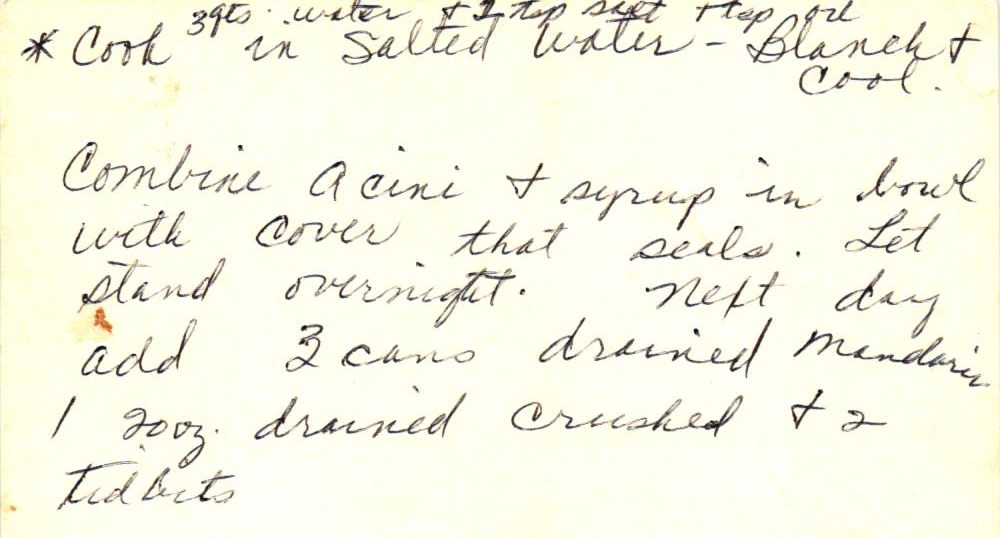 3 qts. water + 2 tsp salt + tsp oil
* Cook in Salted Water - Blanch +
Cool.
Combine Acini + syrup in bowl
with cover that seals. Let
stand overnight. Next day
add 3 cans drained Mandarin
1 20 oz. drained crushed + 2
tidbits